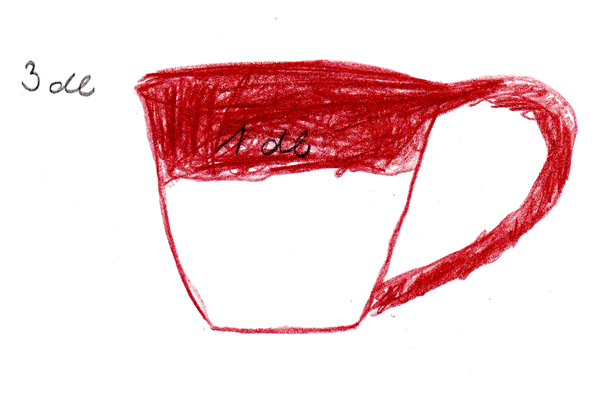 3 dl
1 dl